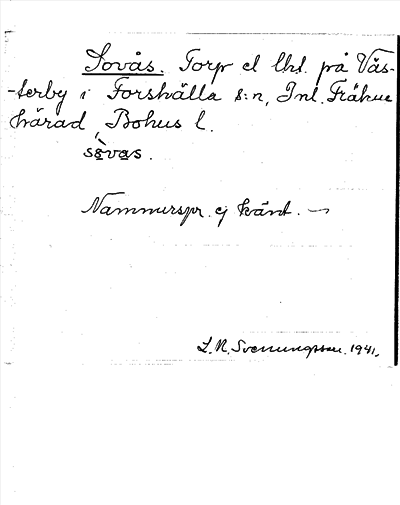 Sovås. Torp el lht. på Väs-
-terby i Forshälla s:n, Inl. Fräkne
härad, Bohus l.
sòvas.
Namnurspr. ej känt. —
L.N. Svenungsson. 1941.